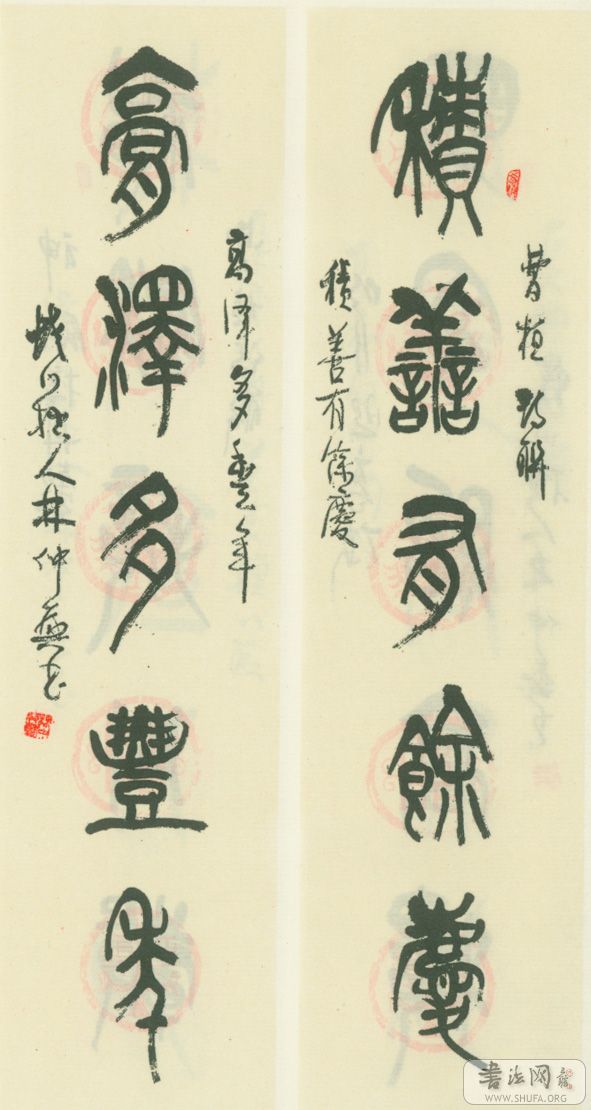 曹植詩聯
積善有餘慶
積善有餘慶
膏澤多豐年
膏澤多豐年
人林仲興書
書法网
WWW.SHUFA.ORG